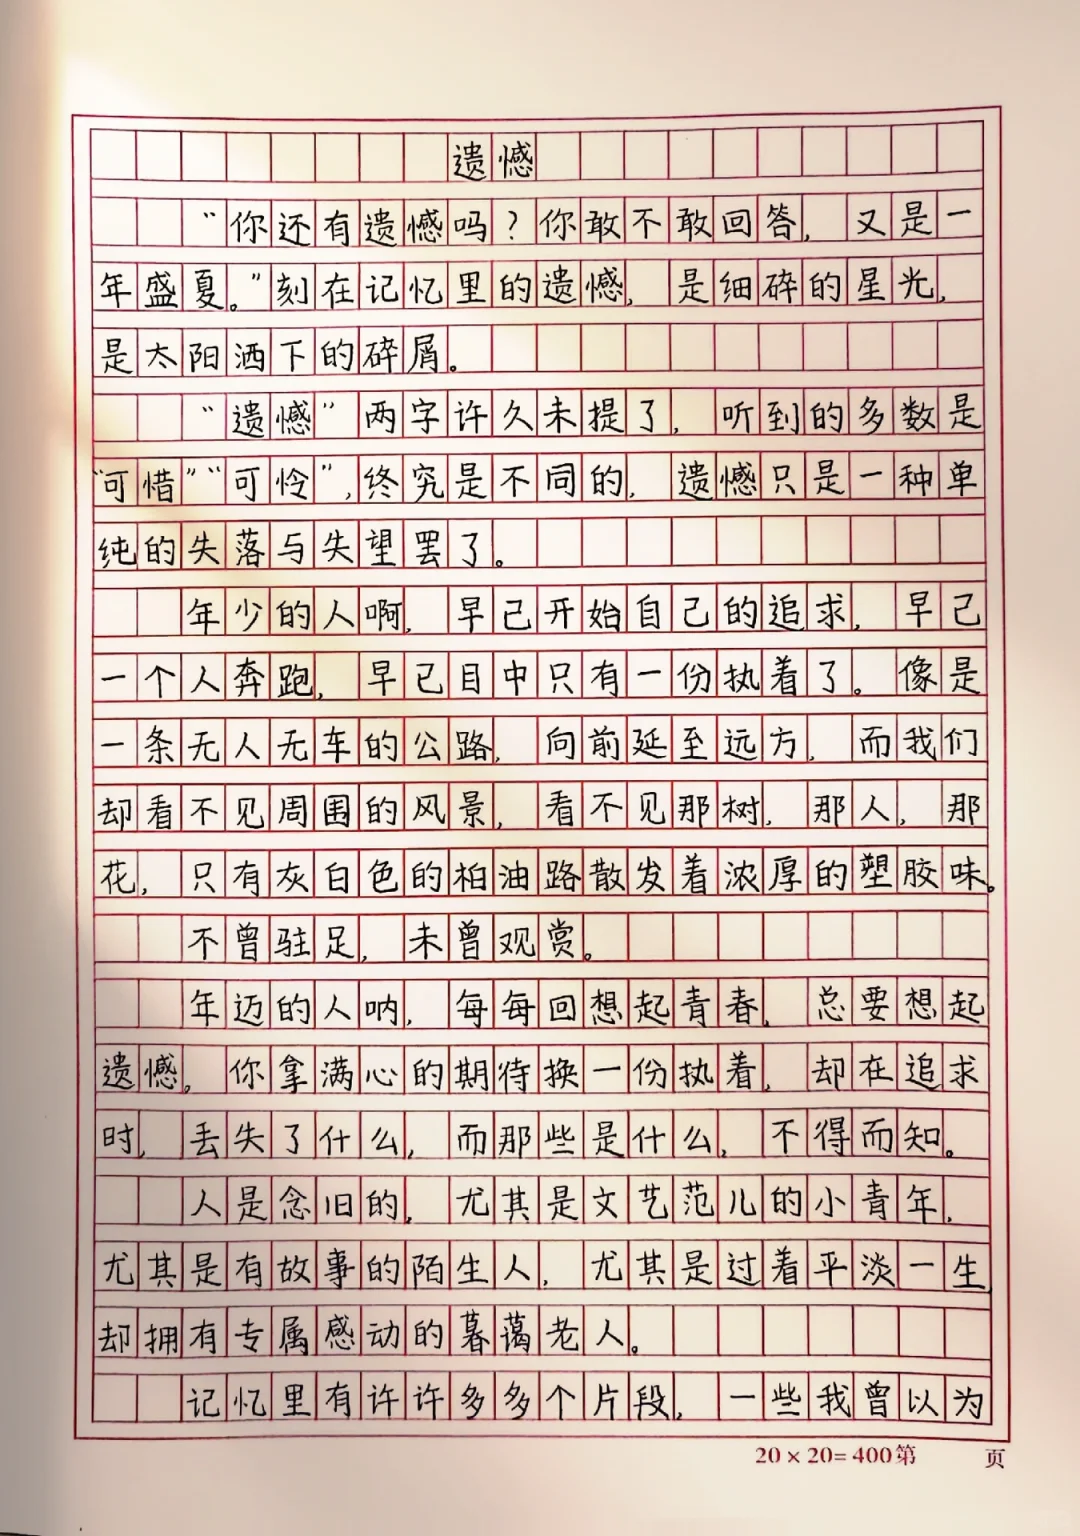 遗憾
“你还有遗憾吗？你敢不敢回答，又是一
年盛夏。”刻在记忆里的遗憾，是细碎的星光，
是太阳洒下的碎屑。
“遗憾”两字许久未提了，听到的多数是
“可惜”“可怜”，终究是不同的，遗憾只是一种单
纯的失落与失望罢了。
年少的人啊，早已开始自己的追求，早已
一个人奔跑，早已目中只有一份执着了。像是
一条无人无车的公路，向前延至远方，而我们
却看不见周围的风景，看不见那树，那人，那
花，只有灰白色的柏油路散发着浓厚的塑胶味。
不曾驻足，未曾观赏。
年迈的人呐，每每回想起青春，总要想起
遗憾，你拿满心的期待换一份执着，却在追求
时，丢失了什么，而那些是什么，不得而知。
人是念旧的，尤其是文艺范儿的小青年，
尤其是有故事的陌生人，尤其是过着平淡一生，
却拥有专属感动的暮蔼老人。
记忆里有许许多多个片段，一些我曾以为
20×20=400 第 页